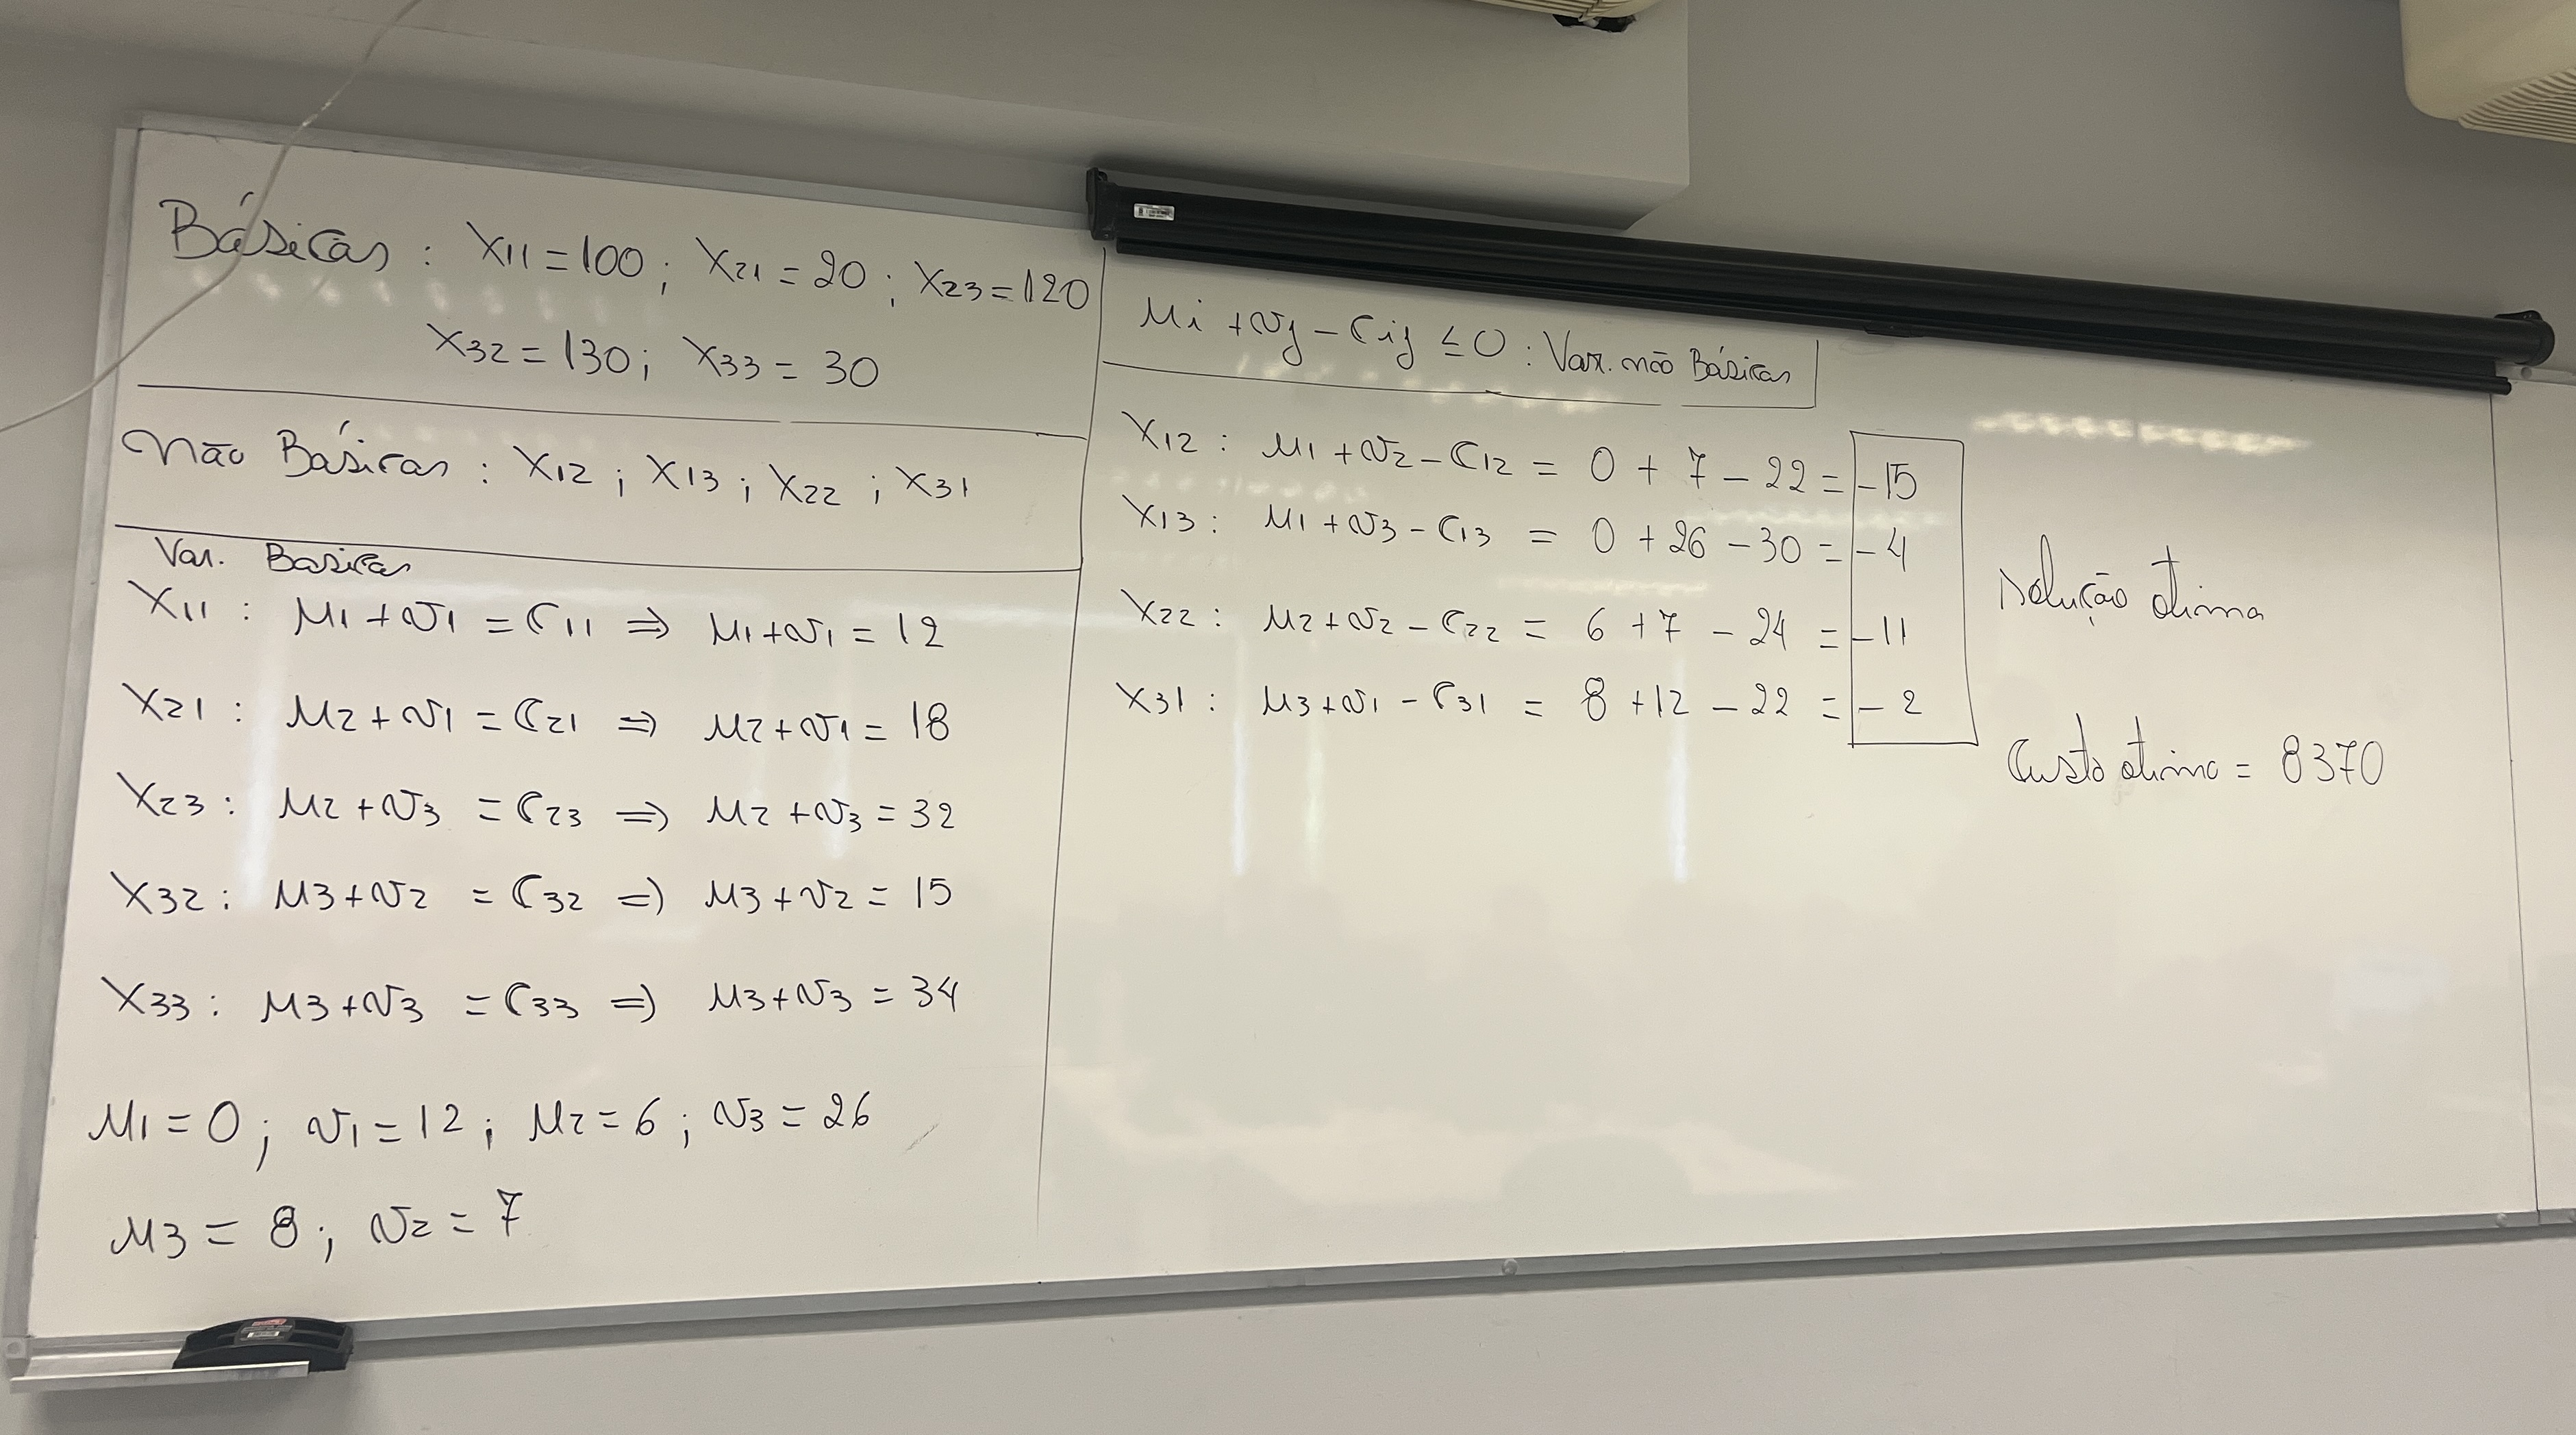 Básicas : X11 = 100 ; X21 = 20 ; X23 = 120
X32 = 130 ; X33 = 30
Não Básicas : X12 ; X13 ; X22 ; X31
Var. Basicas
X11 : μ1 + v1 = C11 ⇒ μ1 + v1 = 12
X21 : μ2 + v1 = C21 ⇒ μ2 + v1 = 18
X23 : μ2 + v3 = C23 ⇒ μ2 + v3 = 32
X32 : μ3 + v2 = C32 ⇒ μ3 + v2 = 15
X33 : μ3 + v3 = C33 ⇒ μ3 + v3 = 34
μ1 = 0 ; v1 = 12 ; μ2 = 6 ; v3 = 26
μ3 = 8 ; v2 = 7
μi + vj - Cij ≤ 0 : Var. não Básicas
X12 : μ1 + v2 - C12 = 0 + 7 - 22 = -15
X13 : μ1 + v3 - C13 = 0 + 26 - 30 = -4
X22 : μ2 + v2 - C22 = 6 + 7 - 24 = -11
X31 : μ3 + v1 - C31 = 8 + 12 - 22 = -2
Solução otima
Custo otimo = 8370